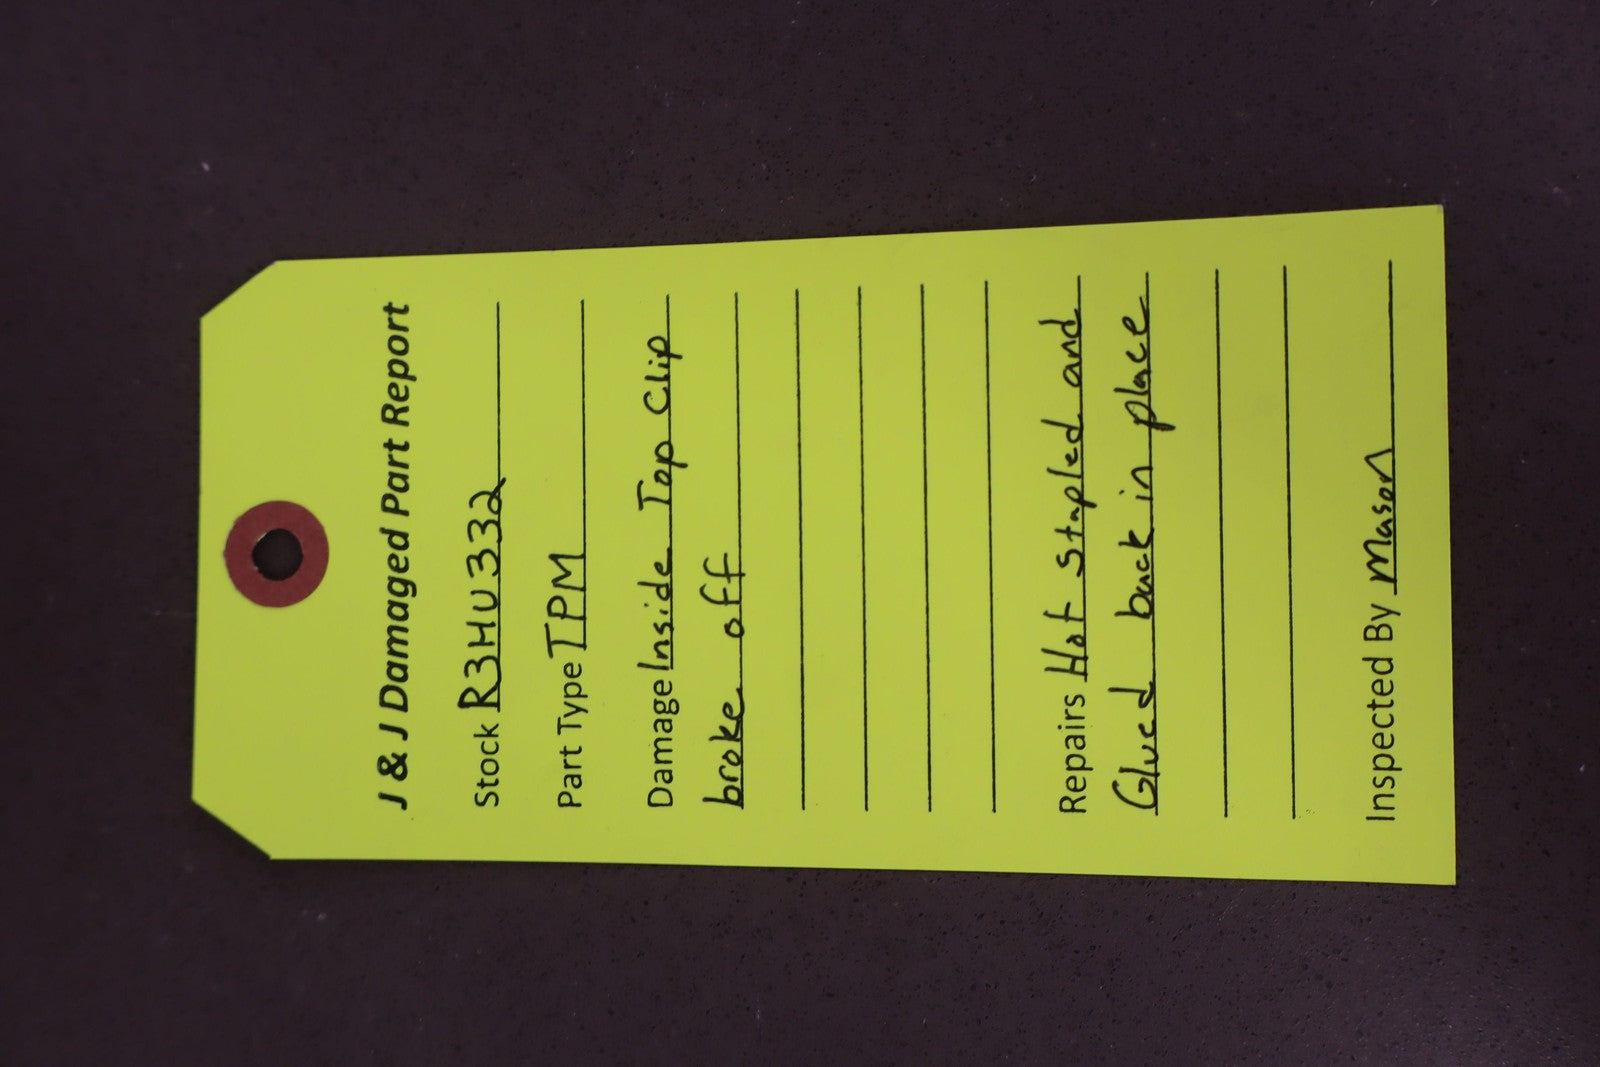 J & J Damaged Part Report
Stock R3HU332
Part Type TPM
Damage Inside Top Clip
broke off
Repairs Hot Stapled and
Glued back in place
Inspected By Mason